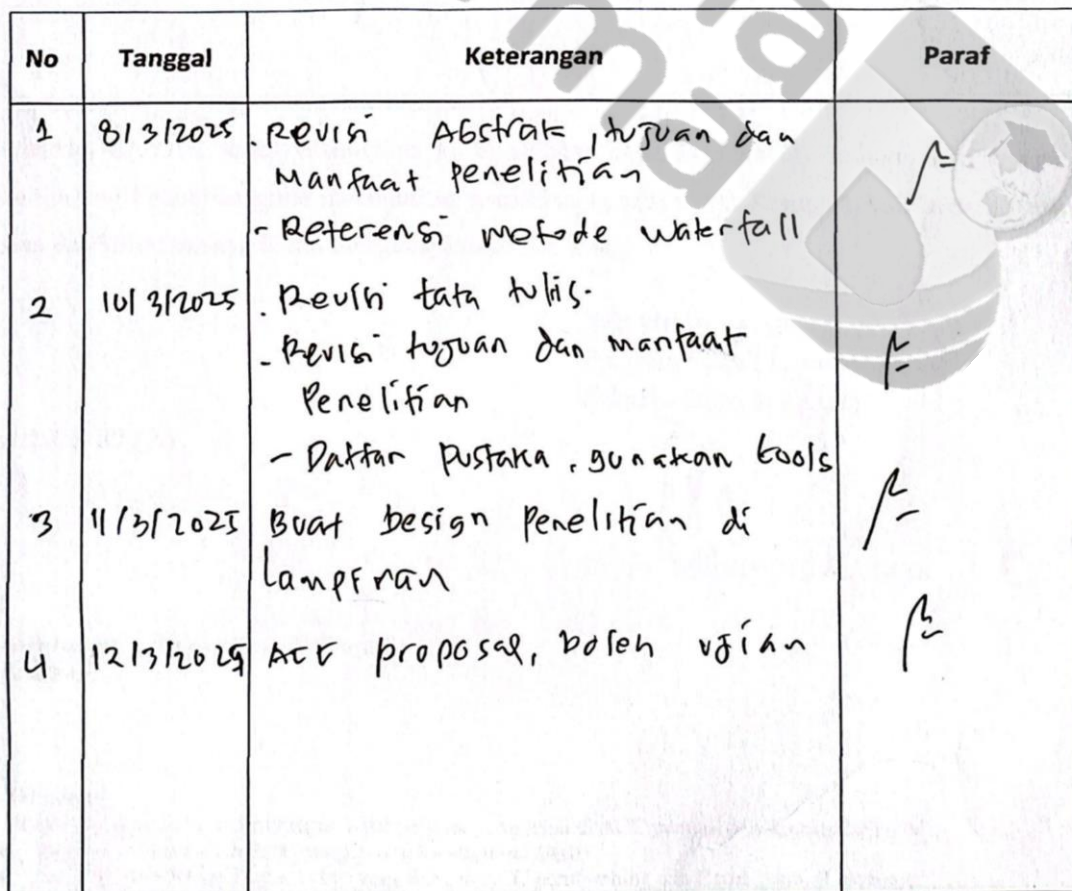 No Tanggal Keterangan Paraf
1 8/3/2025 Revisi Abstrak, tujuan dan
Manfaat penelitian
- Referensi metode waterfall
2 10/3/2025 . Revisi tata tulis.
- Revisi tujuan dan manfaat
Penelitian
- Daftar pustaka, gunakan tools
3 11/3/2025 Buat design penelitian di
lampiran
4 12/3/2025 Acc proposal, boleh ujian